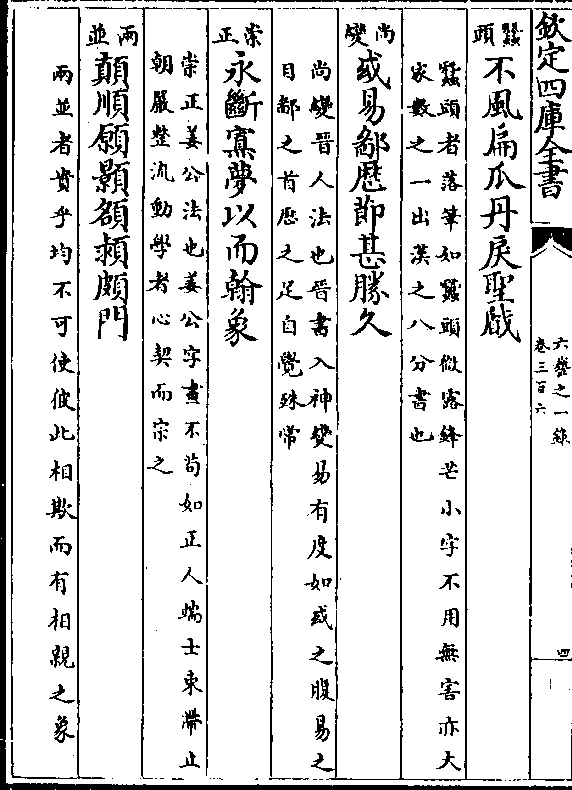 欽定四庫全書
六藝之一錄
卷三百六
四
蠶頭
不風扁爪丹戾聖戲
蠶頭者落筆如蠶頭微露鋒芒小字不用無害亦大
家數之一出漢之八分書也
尚變
或易鄒歷節甚勝久
尚變晉人法也晉書入神變易有度如或之股易之
目鄒之首歷之足自覺殊常
崇正
永斷寡夢以而翰象
崇正姜公法也姜公字畫不茍如正人端士束帶止
朝嚴整流動學者心契而宗之
兩並
顛順願顥額頰頗門
兩並者貴乎均不可使彼此相欺而有相親之象